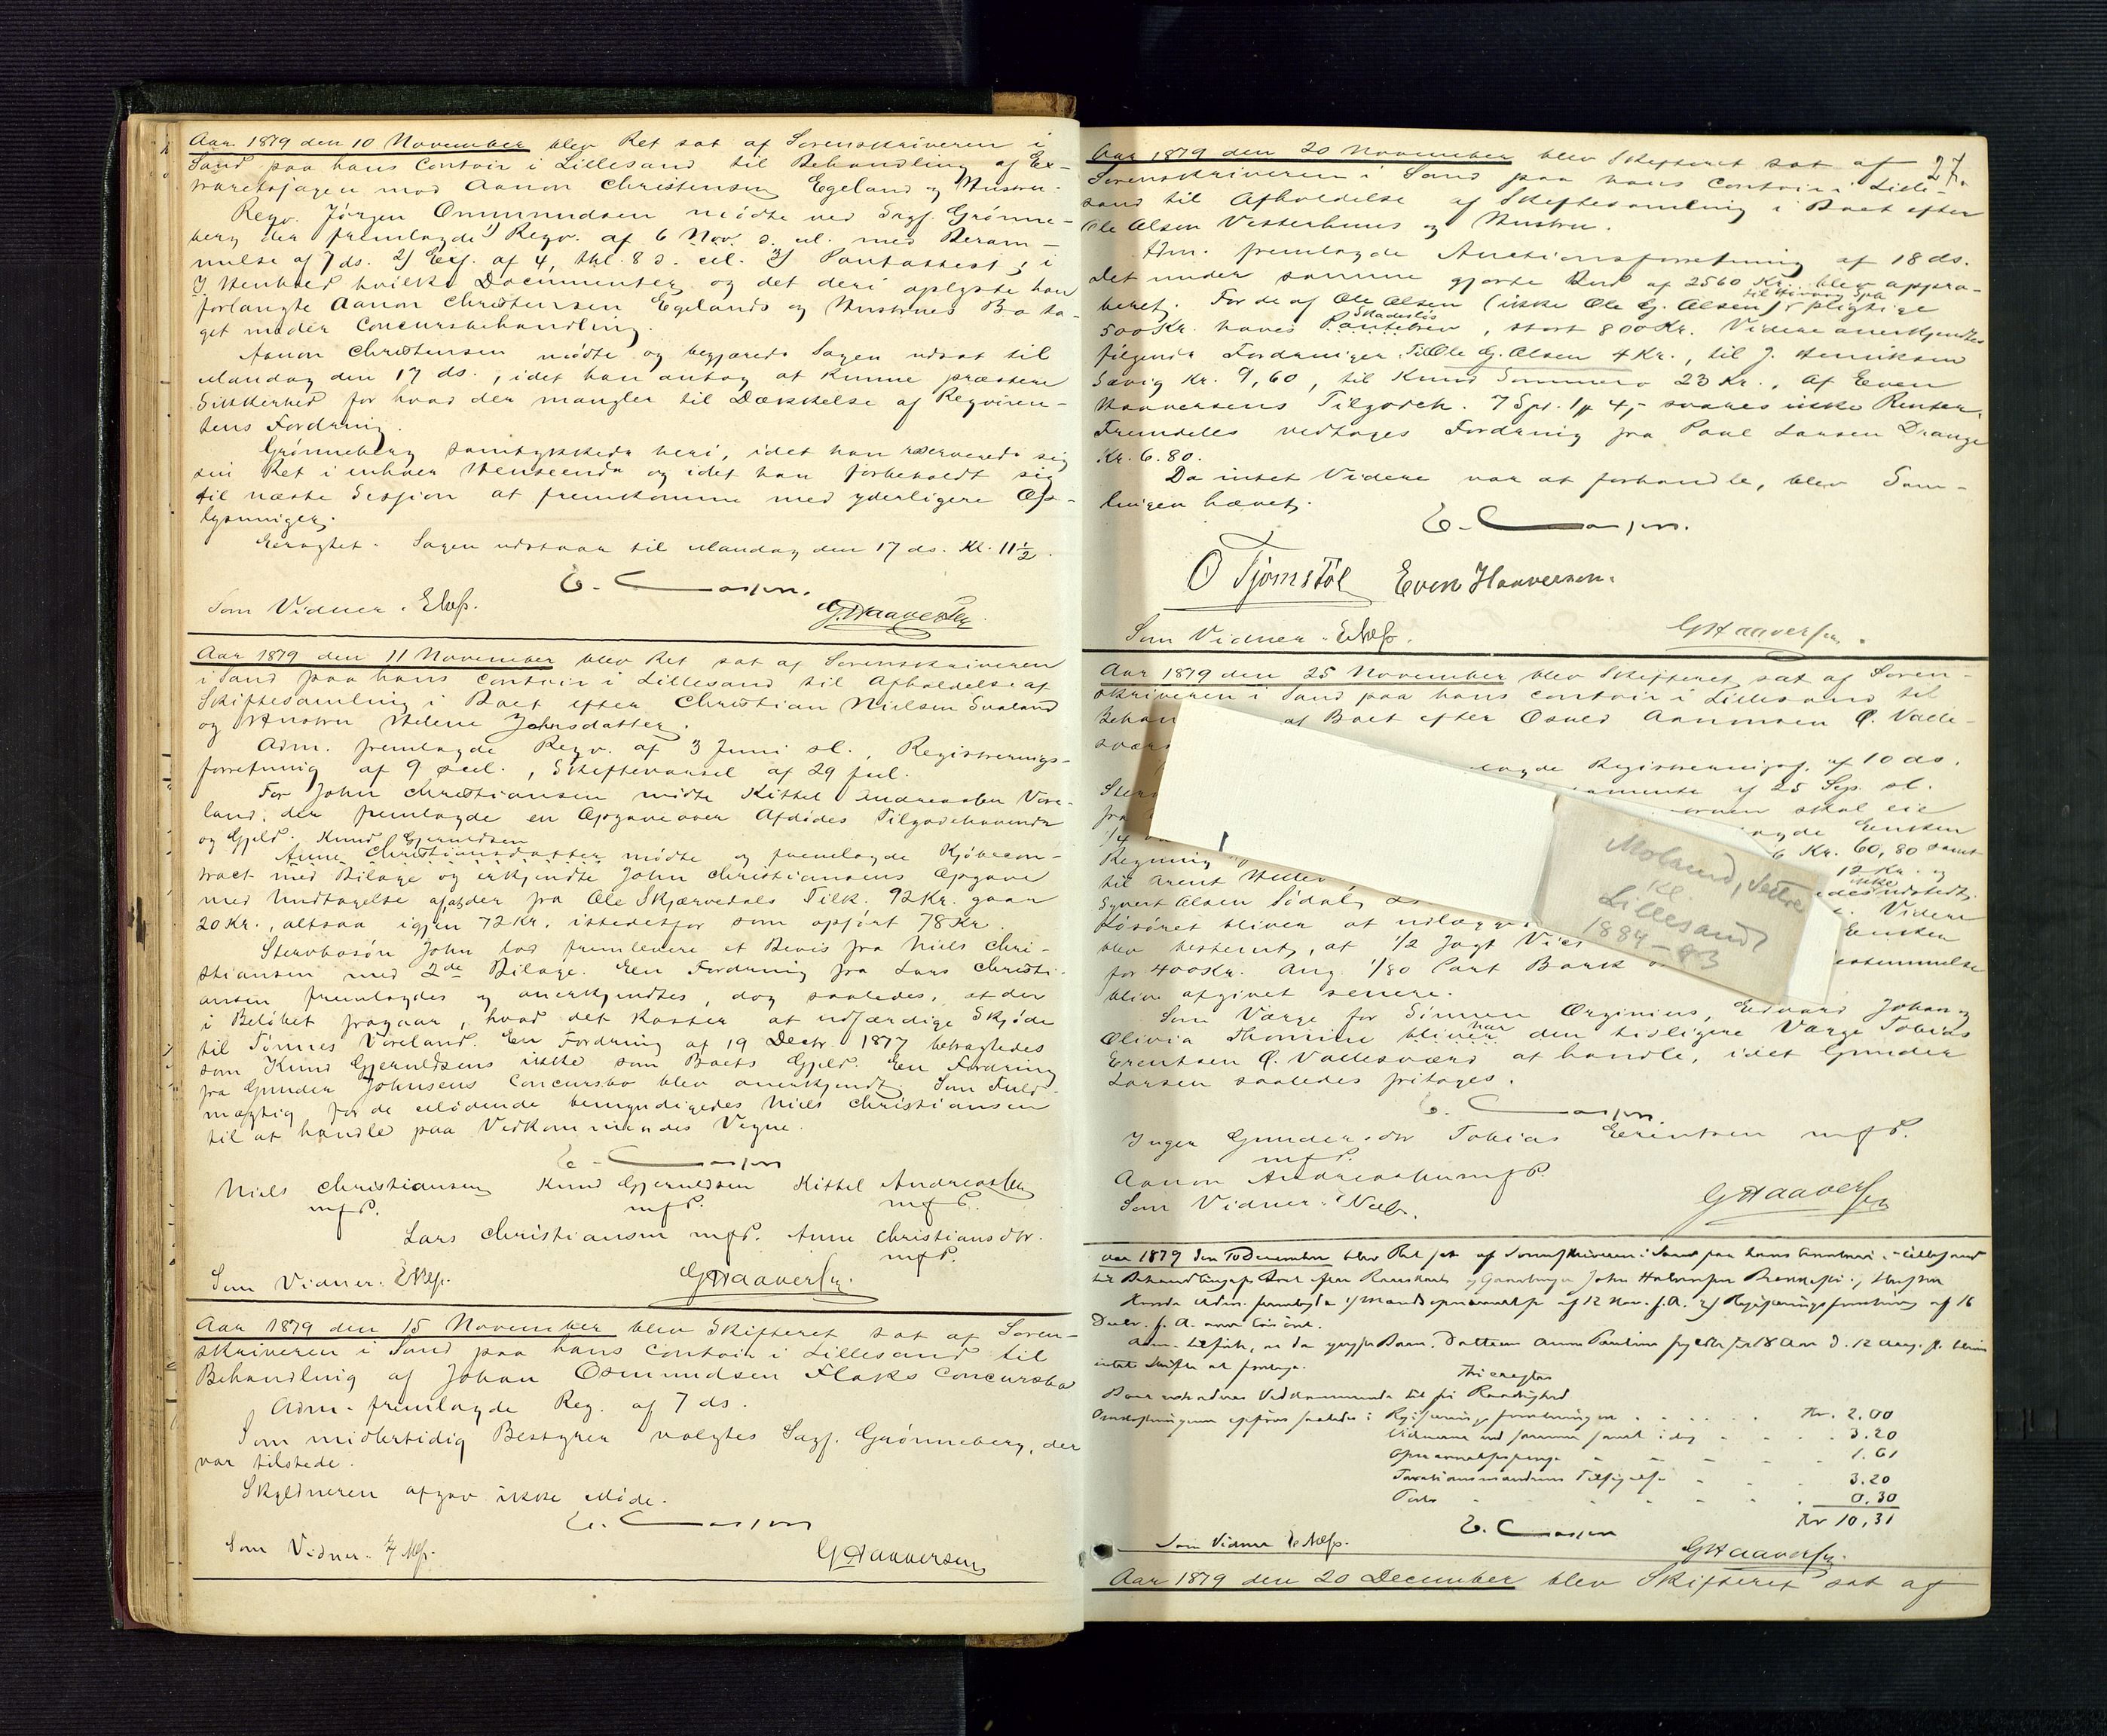 Aar 1879 den 10 November blev Ret sat af Sorenskriveren i
Sand paa hans Contoir i Lillesand til Behandling af Ex-
mod Aanon Christensen Egeland og Hustru.
Reqv. Jörgen Ommundsen mödte ved Sagf. Grönne-
berg der fremlagde 1) Reqv. af 6 Nov. d. A. med Beram-
melse af 7 ds. 2) Exf. af 4, 3) Pantattest; i
Henhold hvilke Documenter og det deri oplyste han
forlangte Aanon Christensen Egelands og Hustrues Bo ta-
get under Concursbehandling.
Aanon Christensen mödte og begjærede Sagen udsat til
Mandag den 17 ds., idet han antog at kunne præstere
Sikkerhed for hvad der mangler til Dækkelse af Reqviren-
tens Fordring.
Grönneberg samtykkede heri, idet han reserverede sig
sin Ret i enhver Henseende og idet han forbeholdt sig
til næste Session at fremkomme med yderligere Op-
lysninger.
Eragtet. Sagen udstaar til Mandag den 17 ds. Kl. 11½.
Som Vidner.
G. Haaversen
Aar 1879 den 11 November blev Ret sat af Sorenskriveren
i Sand paa hans Contoir i Lillesand til Afholdelse af
Skiftesamling i Boet efter Christian Nielsen Svaland
og Hustru Helene Johnsdatter.
Adm. fremlagde Reqv. af 3 Juni sl., Registrerings-
forretning af 9 , Skiftevarsel af 29 Jul.
For John Christiansen mödte Kittel Andreassen Vore-
land, der fremlagde en Opgave over Afdödes Tilgodehavende
og Gjeld. Knud Gjeruldsen
Anne Christiansdatter mödte og fremlagde Kjöbecon-
tract med Bilage og erkjendte John Christiansens Opgave
med Undtagelse af at der fra Ole Skjærvedals Tilk. 92 Kr. gaar
20 Kr., altsaa igjen 72 Kr. istedetfor som opfört 78 Kr.
Stervbosön John lod fremlevere et Bevis fra Niels Chri-
stiansen med 2de Bilage. En Fordring fra Lars Christi-
ansen fremlagdes og anerkjendtes, dog saaledes, at der
i Belöbet fragaar, hvad det koster at udfærdige Skjöde
til Tönnes Voreland. En Fordring af 19 Decbr. 1877 betragtedes
som Knud Gjeruldsens ikke som Boets Gjeld. En Fordring
fra Gunder Johnsens Concursbo blev anerkjendt. Som Fuld-
mægtig for de udödende bemyndigedes Niels Christiansen
til at handle paa Vedkommendes Vegne.
Niels Christiansen Knud Gjeruldsen Kittel Andreassen
mfP. mfP. mfP.
Lars Christiansen mfP. Anne Christiansdtr.
mfP.
Som Vidner.
GHaaversen
Aar 1879 den 15 November blev Skifteret sat af Soren-
skriveren i Sand paa hans Contoir i Lillesand til
Behandling af Johan Osmundsen Flaks Concursbo
Adm. fremlagde Reg. af 7 ds.
Som midlertidig Bestyrer valgtes Sagf. Grönneberg, der
var tilstede.
Skyldneren afgav ikke Möde.
Som Vidner.
GHaaversen
27.
Aar 1879 den 20 November blev Skifteret sat af
Sorenskriveren i Sand paa hans Contoir i Lille-
sand til Afholdelse af Skiftesamling i Boet efter
Ole Olsen Vesterhuus og Hustru.
Adm. fremlagde Auctionsforretning af 18 ds.
Det under samme gjorte Bud af 2560 Kr. blev appro-
beret. For de af Ole Olsen (ikke Ole G. Olsen) pligtige
500 Kr. haves Skadeslös Pantebrev, stort 800 Kr. Videre anerkjendtes
fölgende Fordringer. Til Ole G. Olsen 4 Kr., til J. Henriksen
Sævig Kr. 9,60, til Knud Sommero 23 Kr., Af Even
Haaversens Tilgodeh. 7 Spd. 1 4,- svares ikke Renter.
Fremdeles vedtoges Fordring fra Paul Larsen Drange
Kr. 6.80.
Da intet Videre var at forhandle, blev Sam-
lingen hævet.
O Tjomstöl Even Haaversen.
Som Vidner.
GHaaversen.
Aar 1879 den 25 November blev Skifteret sat af Soren-
skriveren i Sand paa hans Contoir i Lillesand til
Behan af Boet efter Osuld Aanonsen Ö. Valle-
svær
lagde Registreringsf. af 10 ds.
af 25 Sep. sl.
skal eie
fra gde Enken
1/4 Kr. 60,80 samt
Regning 12 Kr. og
til Arent ikke udstedt.
Syvert Olsen Videre
Lösöret bliver at udlægge Enken
blev bestemt, at 1/2 Jagt
for 400 Kr. Ang. 1/80 Part Bark estemmelse
blive afgivet senere.
Som Værge for Simen Orginius, Edvard Johan og
Olivia Thomine bliver har den tidligere Værge Tobias
Erentsen Ö. Vallesværd at handle, idet Gunder
Larsen saaledes fritages.
Inger Gundersdtr Tobias Erentsen mfP.
mfP.
Aanon Andreassen mfP.
Som Vidner.
GHaaversen
Moland, Vestre
Kl.
Lillesand
1884-93
Aar 1879 den 10 December blev Ret sat af Sorenskriveren i Sand paa hans Contoir i Lillesand
til Behandling af Boet efter og Gaardbruger John Halvorsen og Hustru
fremlagde 1) af 12 Nov. f. A. 2) Registreringsforretning af 16
Decbr. f. A. over Lösöret.
18 Aar d. 12 Aug.
intet Skifte at foretage.
Thi eragtes
Boet Vedkommende til fri Raadighed
Omkostningerne opföres saaledes: Registreringsforretningen Kr. 2.00
Vidnerne ved samme samt i dag 3.20
1.61
Taxationsmændenes Tilsigelse 3.20
Porto 0.30
Kr 10,31
Som Vidner
GHaaversen.
Aar 1879 den 20 December blev Skifteret sat af